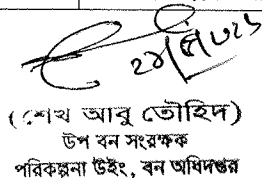 (শেখ আবু তৌহিদ)
উপ বন সংরক্ষক
পরিকল্পনা উইং, বন অধিদপ্তর